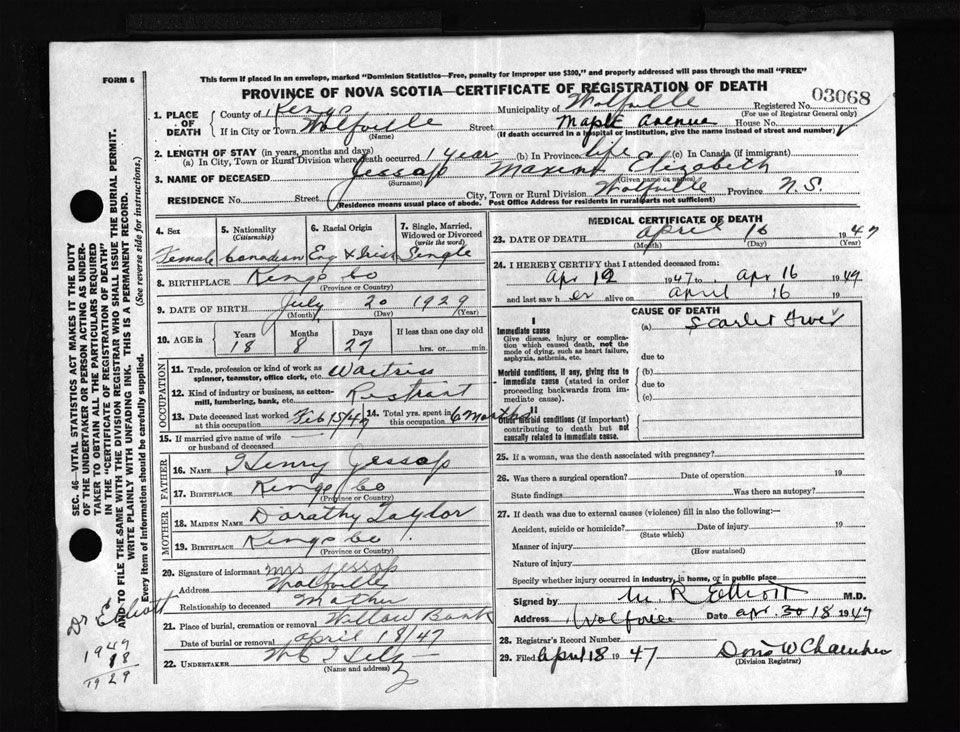 FORM 6
This form if placed in an envelope, marked "Dominion Statistics—Free, penalty for improper use $300," and properly addressed will pass through the mail "FREE"
PROVINCE OF NOVA SCOTIA—CERTIFICATE OF REGISTRATION OF DEATH
1. PLACE OF DEATH County of Kings Municipality of Wolfville Registered No. 03068
(For use of Registrar General only)
If in City or Town Wolfville Street Maple Avenue House No.
(Name) (If death occurred in a hospital or institution, give the name instead of street and number)
2. LENGTH OF STAY (in years, months and days)
(a) In City, Town or Rural Division where death occurred 1 year (b) In Province life (c) In Canada (if immigrant)
3. NAME OF DECEASED Jessop Elizabeth
(Surname) (Given name or names)
RESIDENCE No. Street City, Town or Rural Division Wolfville Province N.S.
(Residence means usual place of abode. Post Office Address for residents in rural parts not sufficient)
4. Sex 5. Nationality (Citizenship) 6. Racial Origin 7. Single, Married, Widowed or Divorced (write the word)
Female Canadian Eng & Irish Single
8. BIRTHPLACE Kings Co
(Province or Country)
9. DATE OF BIRTH July 20 1929
(Month) (Day) (Year)
10. AGE in Years Months Days If less than one day old
18 8 27 hrs. or min.
OCCUPATION
11. Trade, profession or kind of work as spinner, teamster, office clerk, etc. Waitriss
12. Kind of industry or business, as cotton-mill, lumbering, bank, etc. Restrant
13. Date deceased last worked at this occupation Feb 15/47 14. Total yrs. spent in this occupation 6 months
15. If married give name of wife or husband of deceased
FATHER
16. NAME Henry Jessop
17. BIRTHPLACE Kings Co
(Province or Country)
MOTHER
18. MAIDEN NAME Dorathy Taylor
19. BIRTHPLACE Kings Co
(Province or Country)
20. Signature of informant Mrs Jessop
Address Wolfville
Relationship to deceased Mother
21. Place of burial, cremation or removal Willow Bank
Date of burial or removal April 18/47
22. UNDERTAKER
(Name and address)
MEDICAL CERTIFICATE OF DEATH
23. DATE OF DEATH April 16 1947
(Month) (Day) (Year)
24. I HEREBY CERTIFY that I attended deceased from:
Apr 12 1947 to Apr 16 1947
and last saw h er alive on April 16 19
CAUSE OF DEATH
I
Immediate cause
Give disease, injury or complication which caused death, not the mode of dying, such as heart failure, asphyxia, asthenia, etc.
(a) Scarlet Fever
due to
Morbid conditions, if any, giving rise to immediate cause (stated in order proceeding backwards from immediate cause).
(b)
due to
(c)
II
Other morbid conditions (if important) contributing to death but not causally related to immediate cause.
25. If a woman, was the death associated with pregnancy?
26. Was there a surgical operation? Date of operation 19
State findings Was there an autopsy?
27. If death was due to external causes (violence) fill in also the following:—
Accident, suicide or homicide? Date of injury 19
(State which)
Manner of injury
(How sustained)
Nature of injury
Specify whether injury occurred in industry, in home, or in public place
Signed by M R Elliott M.D.
Address Wolfville Date Apr. 30 18 1947
28. Registrar's Record Number
29. Filed April 18 1947
(Division Registrar)
SEC. 46—VITAL STATISTICS ACT MAKES IT THE DUTY
OF THE UNDERTAKER OR PERSON ACTING AS UNDER-
TAKER TO OBTAIN ALL THE PARTICULARS REQUIRED
IN THE "CERTIFICATE OF REGISTRATION OF DEATH"
AND TO FILE THE SAME WITH THE DIVISION REGISTRAR WHO SHALL ISSUE THE BURIAL PERMIT.
WRITE PLAINLY WITH UNFADING INK. THIS IS A PERMANENT RECORD.
Every item of information should be carefully supplied. (See reverse side for instructions.)
Dr Elliott
1947
18
1929